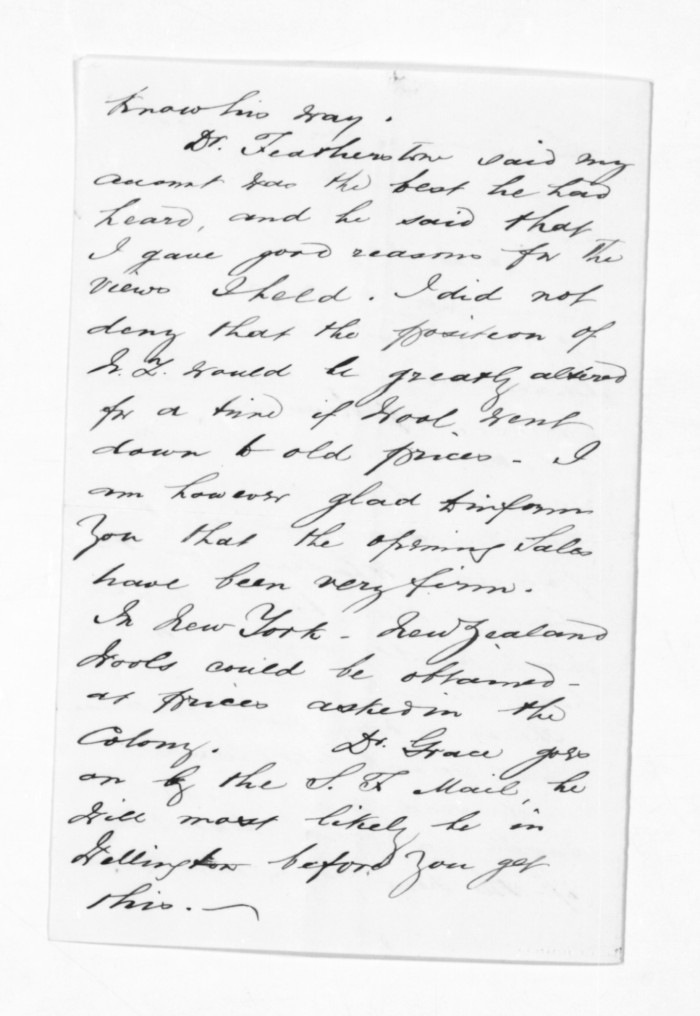 know his way.
Dr. Featherston said my
account was the best he had
heard, and he said that
I gave good reasons for the
views I held. I did not
deny that the position of
N. Z. would be greatly altered
for a time if Wool went
down to old prices - I
am however glad to inform
you that the opening Sales
have been very firm.
In New York - New Zealand
Wools could be obtained -
at prices asked in the
Colony. Dr. Grace goes
on by the S. F. Mail, he
will most likely be in
Wellington before you get
this. -